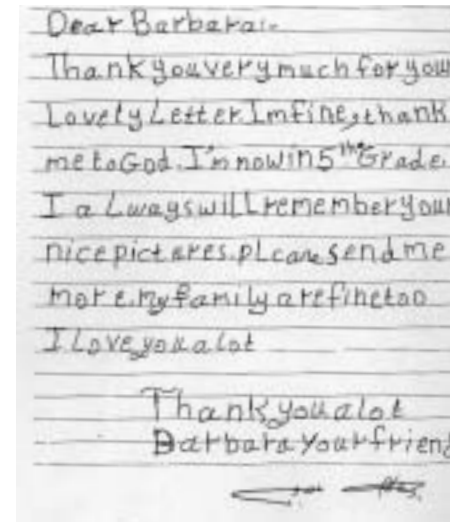 Dear Barbara:-
Thank you very much for your
Lovely Letter Im fine, thank
me to God. I'm now in 5 the Grade.
I a Lways will remember your
nice pictares. pLcase send me
more. my family are fine too
I Love you a lot
Thank you a lot
Barbara your friend